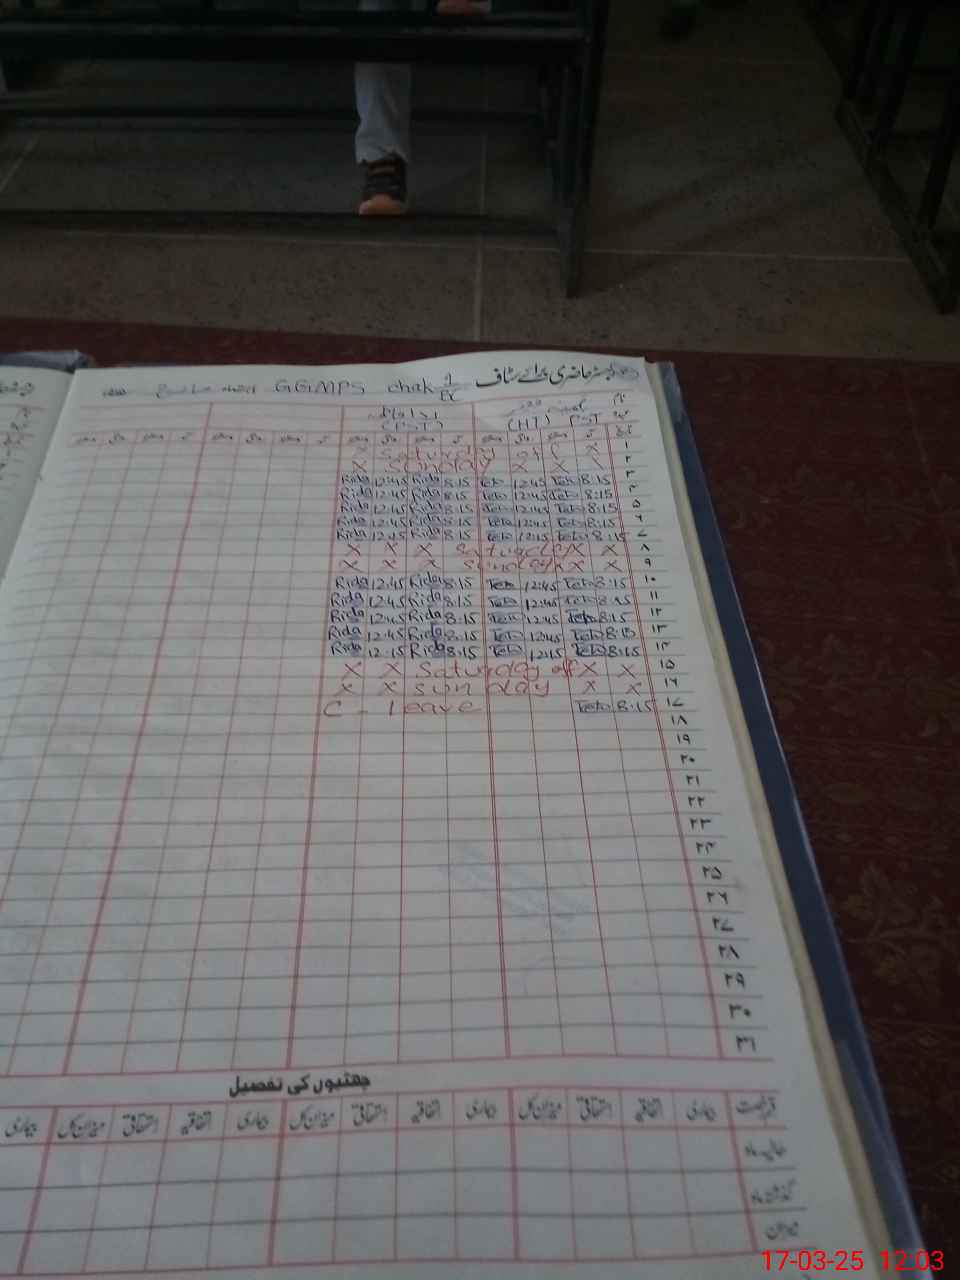 رجسٹر حاضری برائے سٹاف GGMPS chak 1/EC
نام
(HT) PST
(PST)
۱ x Saturday off x
۲ x Sunday x x
۳ 8:15 12:45 8:15 Rida 12:45 Rida
۴ 8:15 12:45 8:15 Rida 12:45 Rida
۵ 8:15 12:45 8:15 Rida 12:45 Rida
۶ 8:15 12:45 8:15 Rida 12:45 Rida
۷ 8:15 12:15 8:15 Rida 12:15 Rida
۸ x x x Saturday x x
۹ x x x Sunday x x x
۱۰ 8:15 12:45 8:15 Rida 12:45 Rida
۱۱ 8:15 12:45 8:15 Rida 12:45 Rida
۱۲ 8:15 12:45 8:15 Rida 12:45 Rida
۱۳ 8:15 12:45 8:15 Rida 12:45 Rida
۱۴ 8:15 12:15 8:15 Rida 12:15 Rida
۱۵ x x Saturday off x x
۱۶ x x Sunday x x
۱۷ C - leave 8:15
۱۸
۱۹
۲۰
۲۱
۲۲
۲۳
۲۴
۲۵
۲۶
۲۷
۲۸
۲۹
۳۰
۳۱
چھٹیوں کی تفصیل
بیماری اتفاقیہ استحقاقی میزان کل بیماری اتفاقیہ استحقاقی میزان کل بیماری اتفاقیہ استحقاقی میزان کل بیماری
حالیہ ماہ
گذشتہ ماہ
میزان
17-03-25 12:03